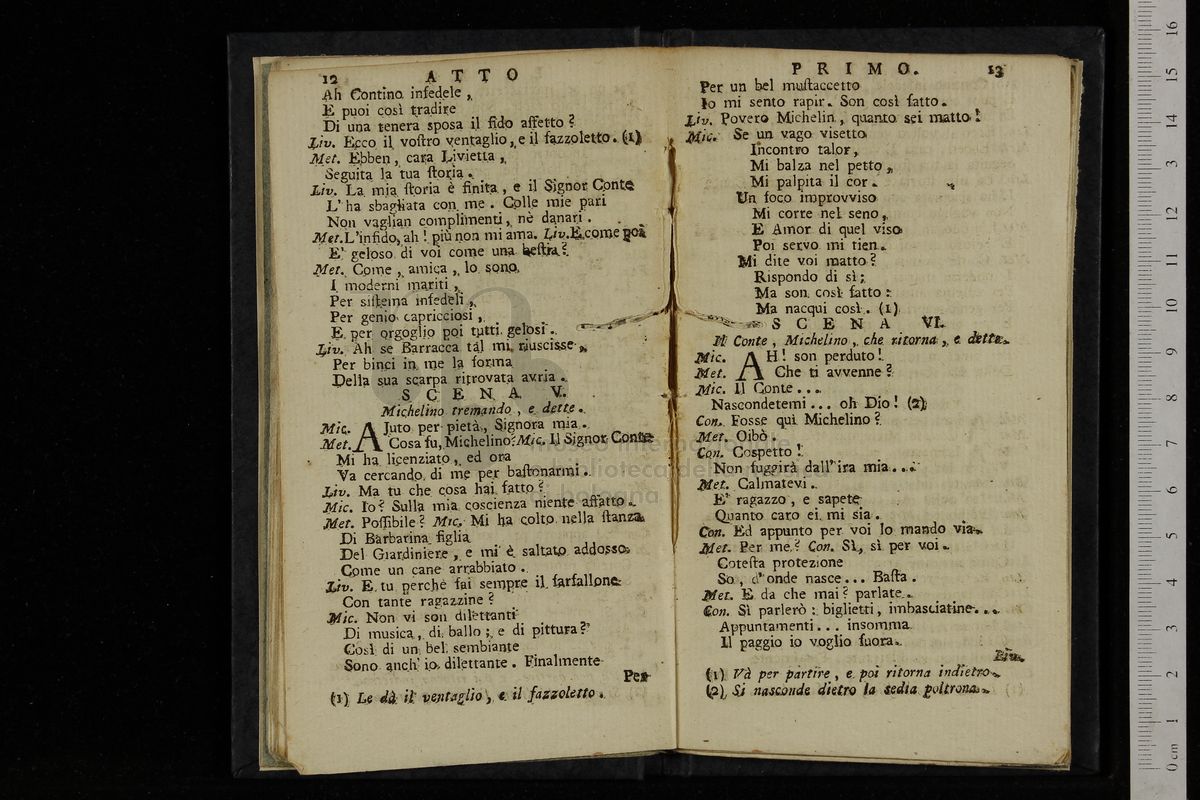 12 ATTO
Ah Contino infedele,
E puoi così tradire
Di una tenera sposa il fido affetto?
Liv. Ecco il voſtro ventaglio, e il fazzoletto. (1)
Met. Ebben, cara Livietta,
Seguita la tua ſtoria.
Liv. La mia ſtoria è finita, e il Signor Conte
L'ha sbagliata con me. Colle mie pari
Non vaglian complimenti, nè danari.
Met. L'infido, ah! più non mi ama. Liv. E come poi
E' geloso di voi come una beſtia?
Met. Come, amica, lo sono
I moderni mariti,
Per siſtema infedeli,
Per genio capricciosi,
E per orgoglio poi tutti gelosi.
Liv. Ah se Barracca tal mi riuscisse,
Per binci in me la forma
Della sua scarpa ritrovata avria.
SCENA V.
Michelino tremando, e dette.
Mic. AJuto per pietà, Signora mia.
Met. Cosa fu, Michelino? Mic. Il Signor Conte
Mi ha licenziato, ed ora
Va cercando di me per baſtonarmi.
Liv. Ma tu che cosa hai fatto?
Mic. Io? Sulla mia coscienza niente affatto.
Met. Poſſibile? Mic. Mi ha colto nella ſtanza
Di Barbarina figlia
Del Giardiniere, e mi è saltato addosso
Come un cane arrabbiato.
Liv. E tu perchè fai sempre il farfallone
Con tante ragazzine?
Mic. Non vi son dilettanti
Di musica, di ballo; e di pittura?
Così di un bel sembiante
Sono anch'io dilettante. Finalmente
Per
(1) Le dà il ventaglio, e il fazzoletto.
PRIMO. 13
Per un bel muſtaccetto
Io mi sento rapir. Son così fatto.
Liv. Povero Michelin, quanto sei matto!
Mic. Se un vago visetto
Incontro talor,
Mi balza nel petto,
Mi palpita il cor.
Un foco improvviso
Mi corre nel seno,
E Amor di quel viso
Poi servo mi tien.
Mi dite voi matto?
Rispondo di sì;
Ma son così fatto:
Ma nacqui così. (1)
SCENA VI.
Il Conte, Michelino, che ritorna, e dette.
Mic. AH! son perduto!
Met. Che ti avvenne?
Mic. Il Conte...
Nascondetemi... oh Dio! (2)
Con. Fosse qui Michelino?
Met. Oibò.
Con. Cospetto!
Non fuggirà dall'ira mia...
Met. Calmatevi.
E' ragazzo, e sapete
Quanto caro ei mi sia.
Con. Ed appunto per voi lo mando via.
Met. Per me? Con. Sì, sì per voi.
Coteſta protezione
So, d'onde nasce... Baſta.
Met. E da che mai? parlate.
Con. Sì parlerò: biglietti, imbasciatine...
Appuntamenti... insomma
Il paggio io voglio fuora.
(1) Và per partire, e poi ritorna indietro.
(2) Si nasconde dietro la sedia poltrona.